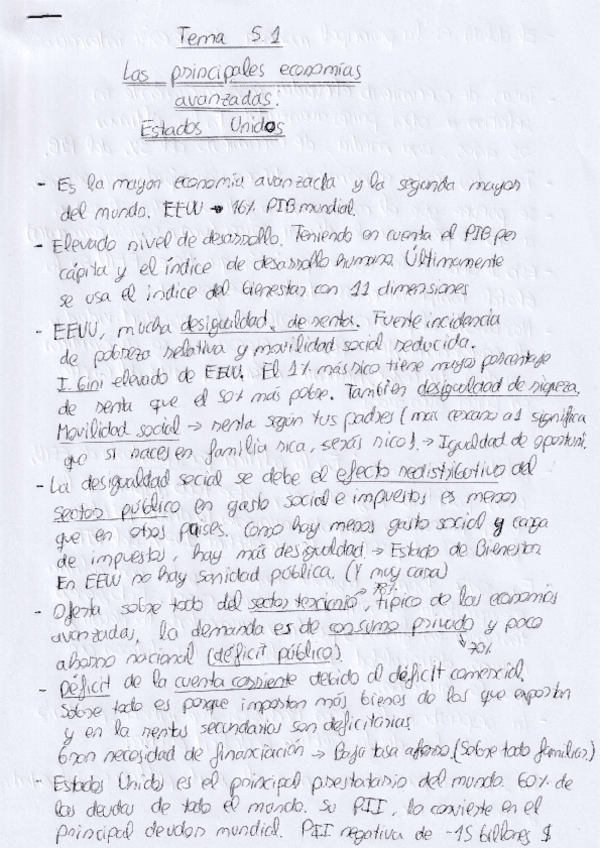 Tema 5.1
Las principales economías
avanzadas:
Estados Unidos
- Es la mayor economía avanzada y la segunda mayor
del mundo. EEUU → 16% PIB mundial.
- Elevado nivel de desarrollo. Teniendo en cuenta el PIB per
cápita y el índice de desarrollo humano. Últimamente
se usa el índice del bienestar con 11 dimensiones
- EEUU, mucha desigualdad de renta. Fuerte incidencia
de pobreza relativa y movilidad social reducida.
I. Gini elevado de EEUU. El 1% más rico tiene mayor porcentaje
de renta que el 50% más pobre. También desigualdad de riqueza.
Movilidad social → renta según tus padres (mas cercano a 1 significa
que si naces en familia rica, serás rico). → Igualdad de oportuni.
- La desigualdad social se debe el efecto redistributivo del
sector público en gasto social e impuestos es menor
que en otros países. Como hay menos gasto social y carga
de impuestos, hay más desigualdad → Estado de Bienestar
En EEUU no hay sanidad pública. (Y muy cara)
- Oferta sobre todo del sector terciario 78%, típico de las economías
avanzadas, la demanda es de consumo privado y poco
70%
ahorro nacional (déficit público).
- Déficit de la cuenta corriente debido al déficit comercial.
Sobre todo es porque importan más bienes de los que exportan
y en la rentas secundarias son deficitarias.
Gran necesidad de financiación → Baja tasa ahorro. (Sobre todo familias.)
- Estados Unidos es el principal prestatario del mundo. 60% de
las deudas de todo el mundo. Su PII, lo convierte en el
principal deudor mundial. PII negativa de -15 billones $